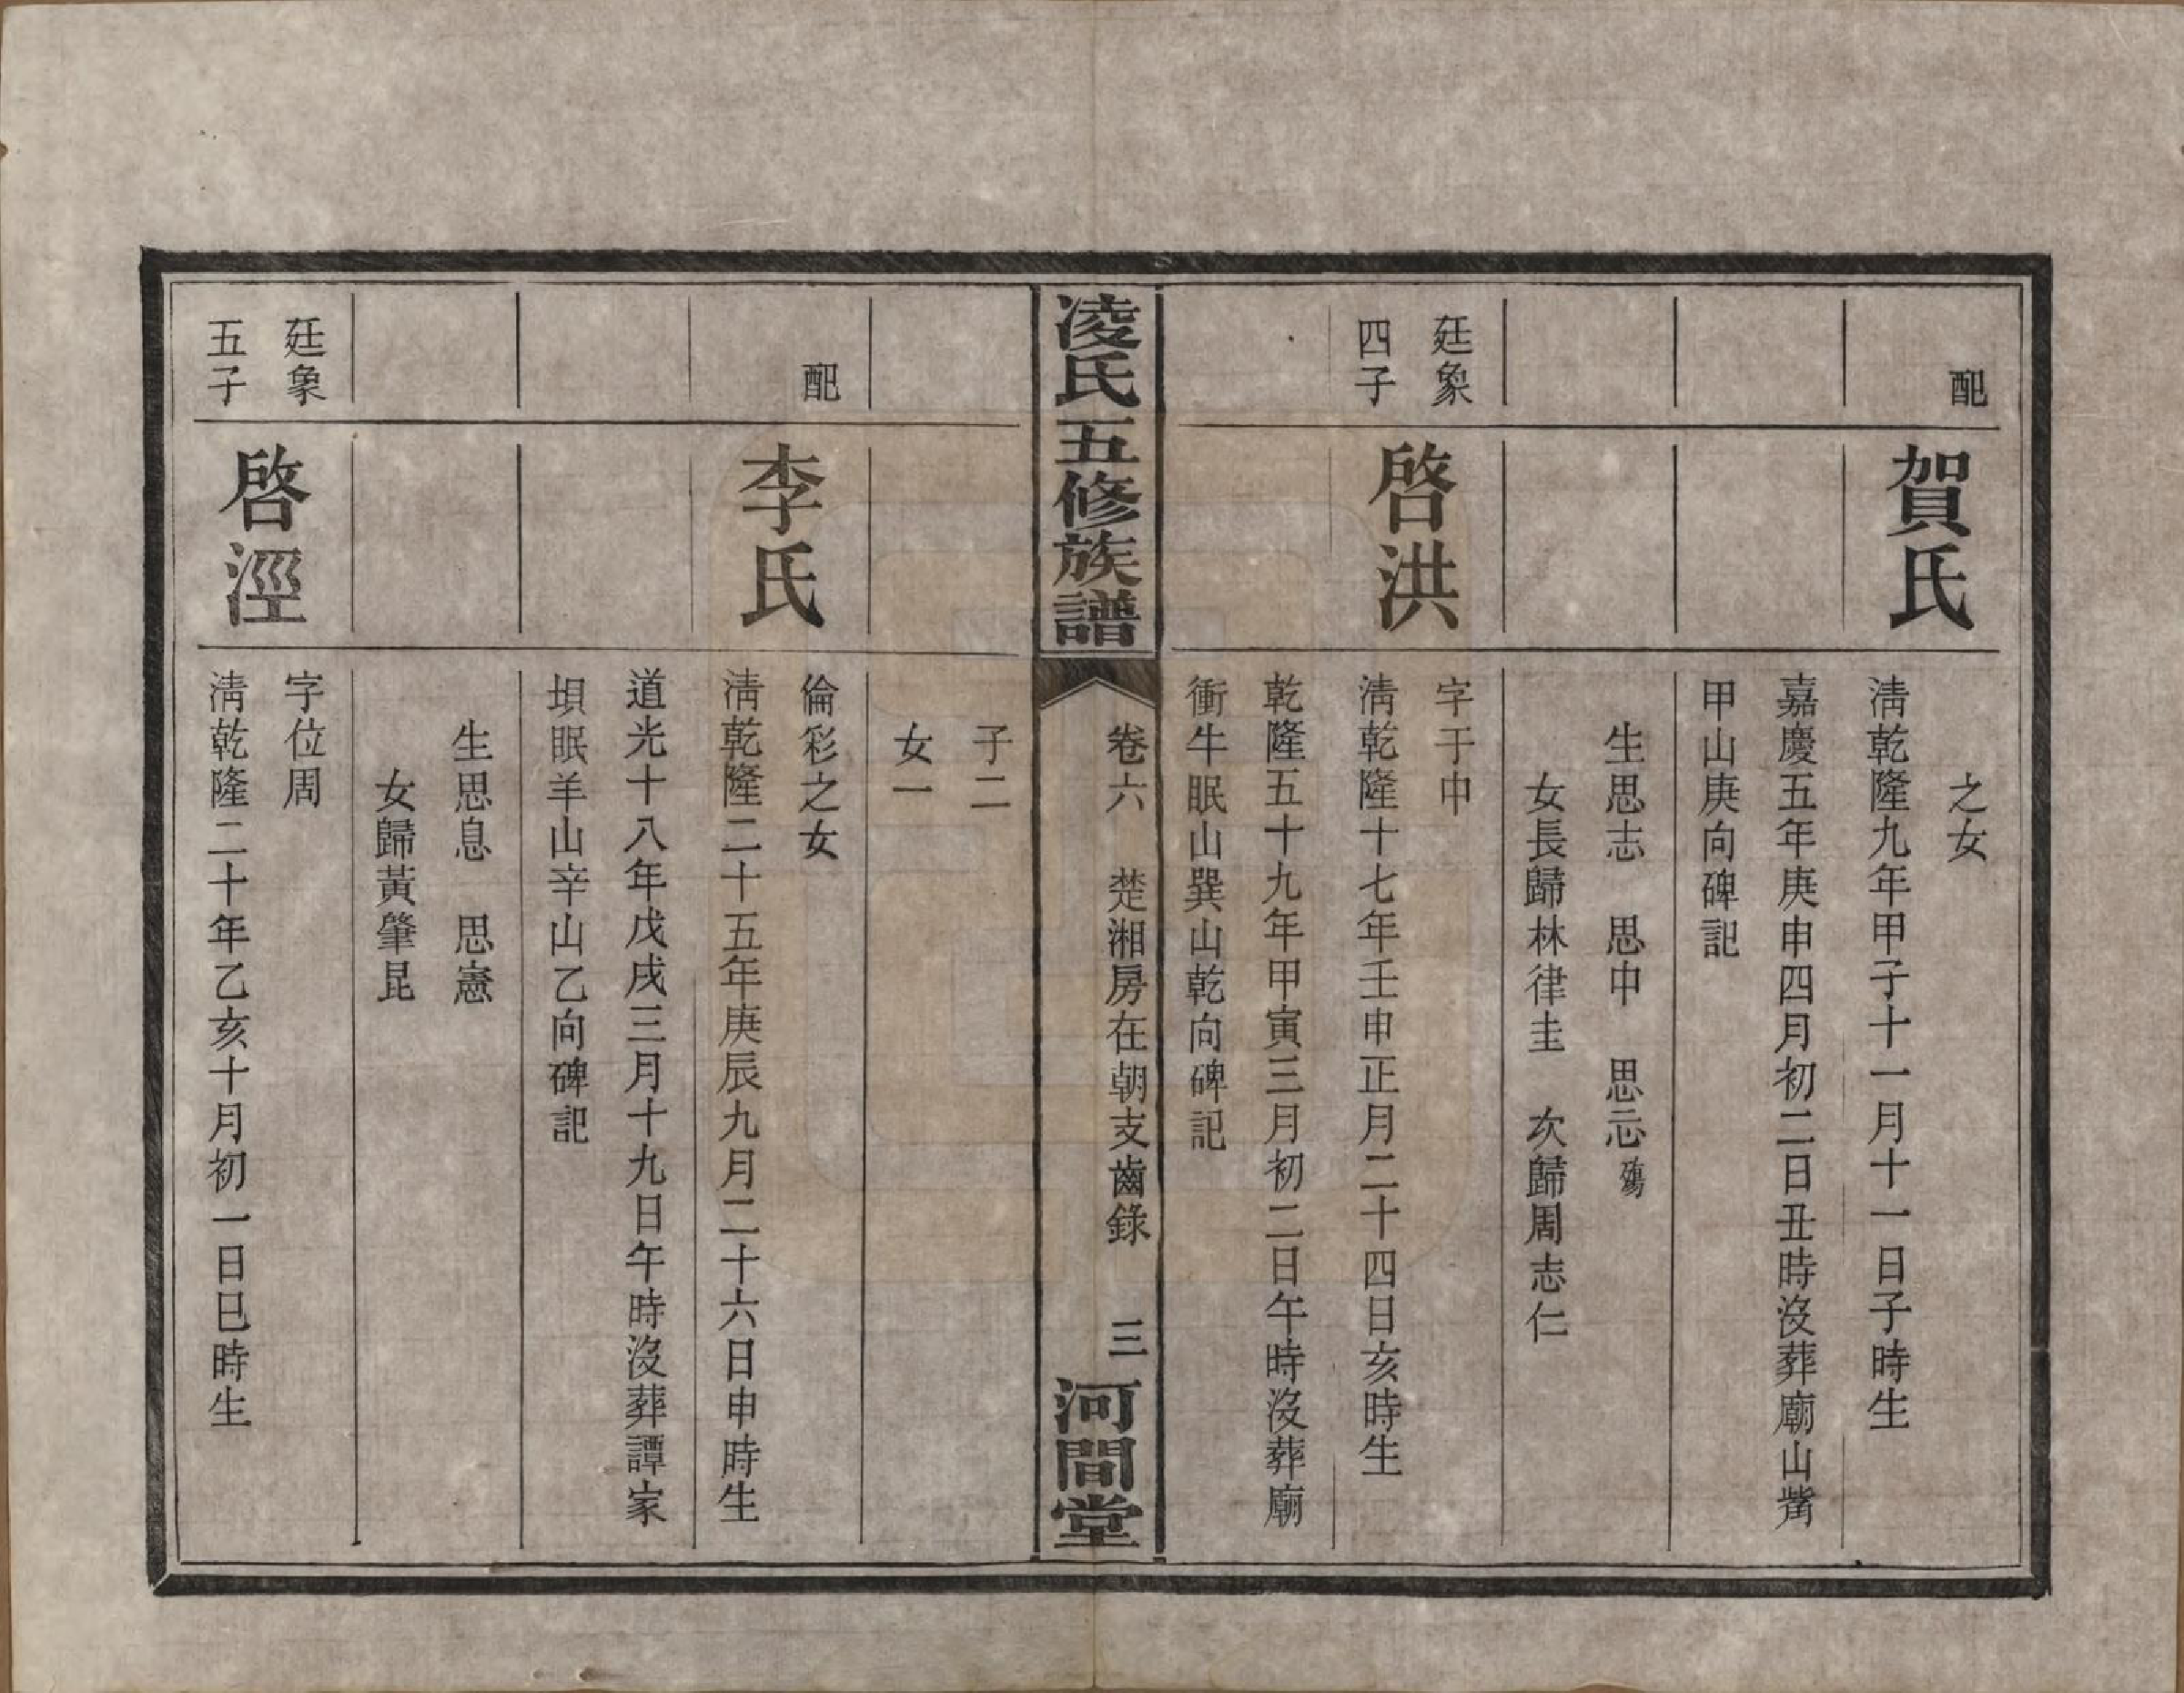 配
賀氏
之女
淸乾隆九年甲子十一月十一日子時生
嘉慶五年庚申四月初二日丑時沒葬廟山觜
甲山庚向碑記
生思志　思中　思忈殤
女長歸林律圭　次歸周志仁
廷象
四子
啓洪
字于中
淸乾隆十七年壬申正月二十四日亥時生
乾隆五十九年甲寅三月初二日午時沒葬廟
衝牛眠山巽山乾向碑記
凌氏五修族譜
卷六　楚湘房在朝支齒錄　三
河間堂
子二
女一
配
李氏
倫彩之女
淸乾隆二十五年庚辰九月二十六日申時生
道光十八年戊戌三月十九日午時沒葬譚家
垻眠羊山辛山乙向碑記
生思息　思憲
女歸黃肇昆
廷象
五子
啓涇
字位周
淸乾隆二十年乙亥十月初一日巳時生